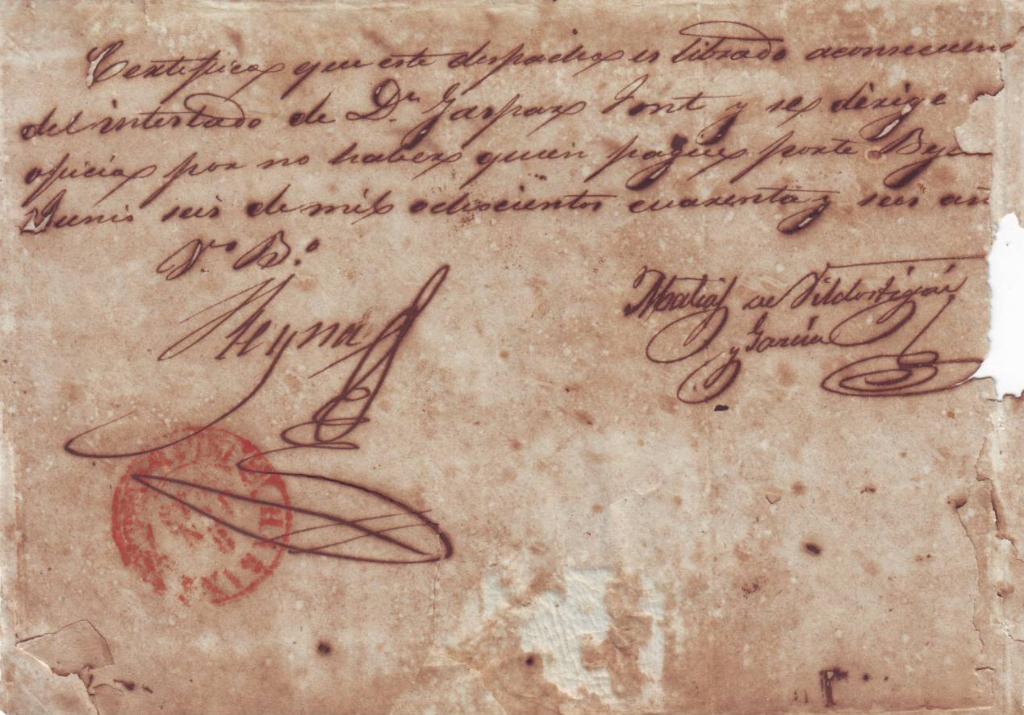 Certifico que este despacho es librado aconsecuenc
del intestado de Dn. Gaspar Font y se dirige
oficio por no haber quien pague porte
Junio seis de mil ochocientos cuarenta y seis añ
Vo. Bo.
Reyna
Matias de Valdortigiar
y Garcia